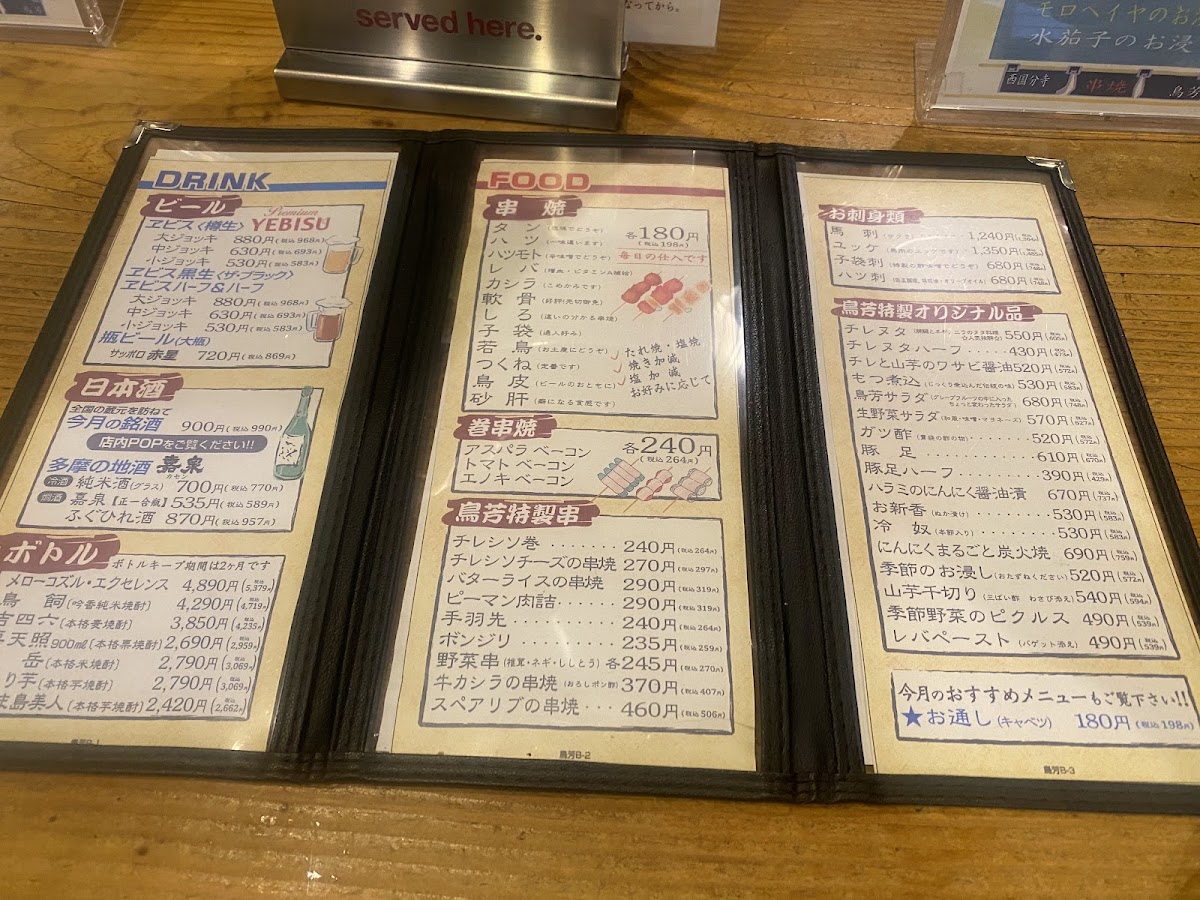 served here.
なってから。
モロヘイヤのお
水茄子のお浸
西国分寺 串焼 鳥芳
DRINK
ビール
Premium YEBISU
ヱビス〈樽生〉
大ジョッキ 880円(税込968円)
中ジョッキ 630円(税込693円)
小ジョッキ 530円(税込583円)
ヱビス黒生〈ザ・ブラック〉
ヱビスハーフ&ハーフ
大ジョッキ 880円(税込968円)
中ジョッキ 630円(税込693円)
小ジョッキ 530円(税込583円)
瓶ビール(大瓶)
サッポロ赤星 720円(税込869円)
日本酒
全国の蔵元を訪ねて
今月の銘酒 900円(税込990円)
店内POPをご覧ください!!
多摩の地酒 嘉泉
カセン
冷酒 純米酒(グラス) 700円(税込770円)
燗酒 嘉泉【正一合瓶】535円(税込589円)
ふぐひれ酒 870円(税込957円)
ボトル ボトルキープ期間は2ヶ月です
メローコズル・エクセレンス 4,890円(税込5,379円)
鳥飼[吟香純米焼酎] 4,290円(税込4,719円)
吉四六[本格麦焼酎] 3,850円(税込4,235円)
天照900㎖[本格蕎焼酎] 2,690円(税込2,959円)
岳[本格米焼酎] 2,790円(税込3,069円)
り芋[本格芋焼酎] 2,790円(税込3,069円)
島美人[本格芋焼酎] 2,420円(税込2,662円)
FOOD
串焼
各180円
(税込198円)
毎日の仕入です
タン(味噌でどうぞ)
ハツ(一味違います)
ハツモト(辛味噌でどうぞ)
レバ(増血・ビタミンA補給)
カシラ(こめかみです)
軟骨(好評!売切御免)
しろ(違いの分かる串焼)
子袋(通人好み)
若鳥(お土産にどうぞ)
つくね(定番です)
鳥皮(ビールのおともに)
砂肝(癖になる食感です)
たれ焼・塩焼
焼き加減
塩加減
お好みに応じて
巻串焼
各240円
(税込264円)
アスパラベーコン
トマトベーコン
エノキベーコン
鳥芳特製串
チレシソ巻 240円(税込264円)
チレシソチーズの串焼 270円(税込297円)
バターライスの串焼 290円(税込319円)
ピーマン肉詰 290円(税込319円)
手羽先 240円(税込264円)
ボンジリ 235円(税込259円)
野菜串(椎茸・ネギ・ししとう)各245円(税込270円)
牛カシラの串焼(おろしポン酢) 370円(税込407円)
スペアリブの串焼 460円(税込506円)
鳥河B-2
お刺身類
馬刺 1,240円
ユッケ 1,350円
子袋刺 680円(税込748円)
ハツ刺 680円(税込748円)
鳥芳特製オリジナル品
チレヌタ 550円(税込605円)
チレヌタハーフ 430円(税込473円)
チレと山芋のワサビ醤油 520円(税込572円)
もつ煮込(じっくり煮込んだ伝統の味) 530円(税込583円)
鳥芳サラダ(グレープフルーツの中に入ったちょっと変わったサラダ) 680円(税込748円)
生野菜サラダ(和風・味噌・マヨネーズ) 570円(税込627円)
ガツ酢(貴袋の酢の物) 520円(税込572円)
豚足 610円
豚足ハーフ 390円(税込429円)
ハラミのにんにく醤油漬 670円(税込737円)
お新香(ぬか漬け) 530円(税込583円)
冷奴(本節入り) 530円(税込583円)
にんにくまるごと炭火焼 690円(税込759円)
季節のお浸し(おたずねください) 520円(税込572円)
山芋千切り(三ばい酢 わさび添え) 540円(税込594円)
季節野菜のピクルス 490円(税込539円)
レバペースト(バゲット添え) 490円(税込539円)
今月のおすすめメニューもご覧下さい!!
★お通し(キャベツ) 180円(税込198円)
鳥河B-3